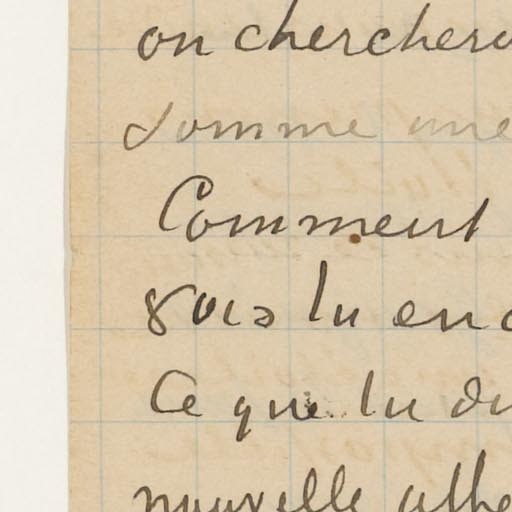 on cherchera
somme une
Comment
vois tu en
Ce que tu
nouvelle